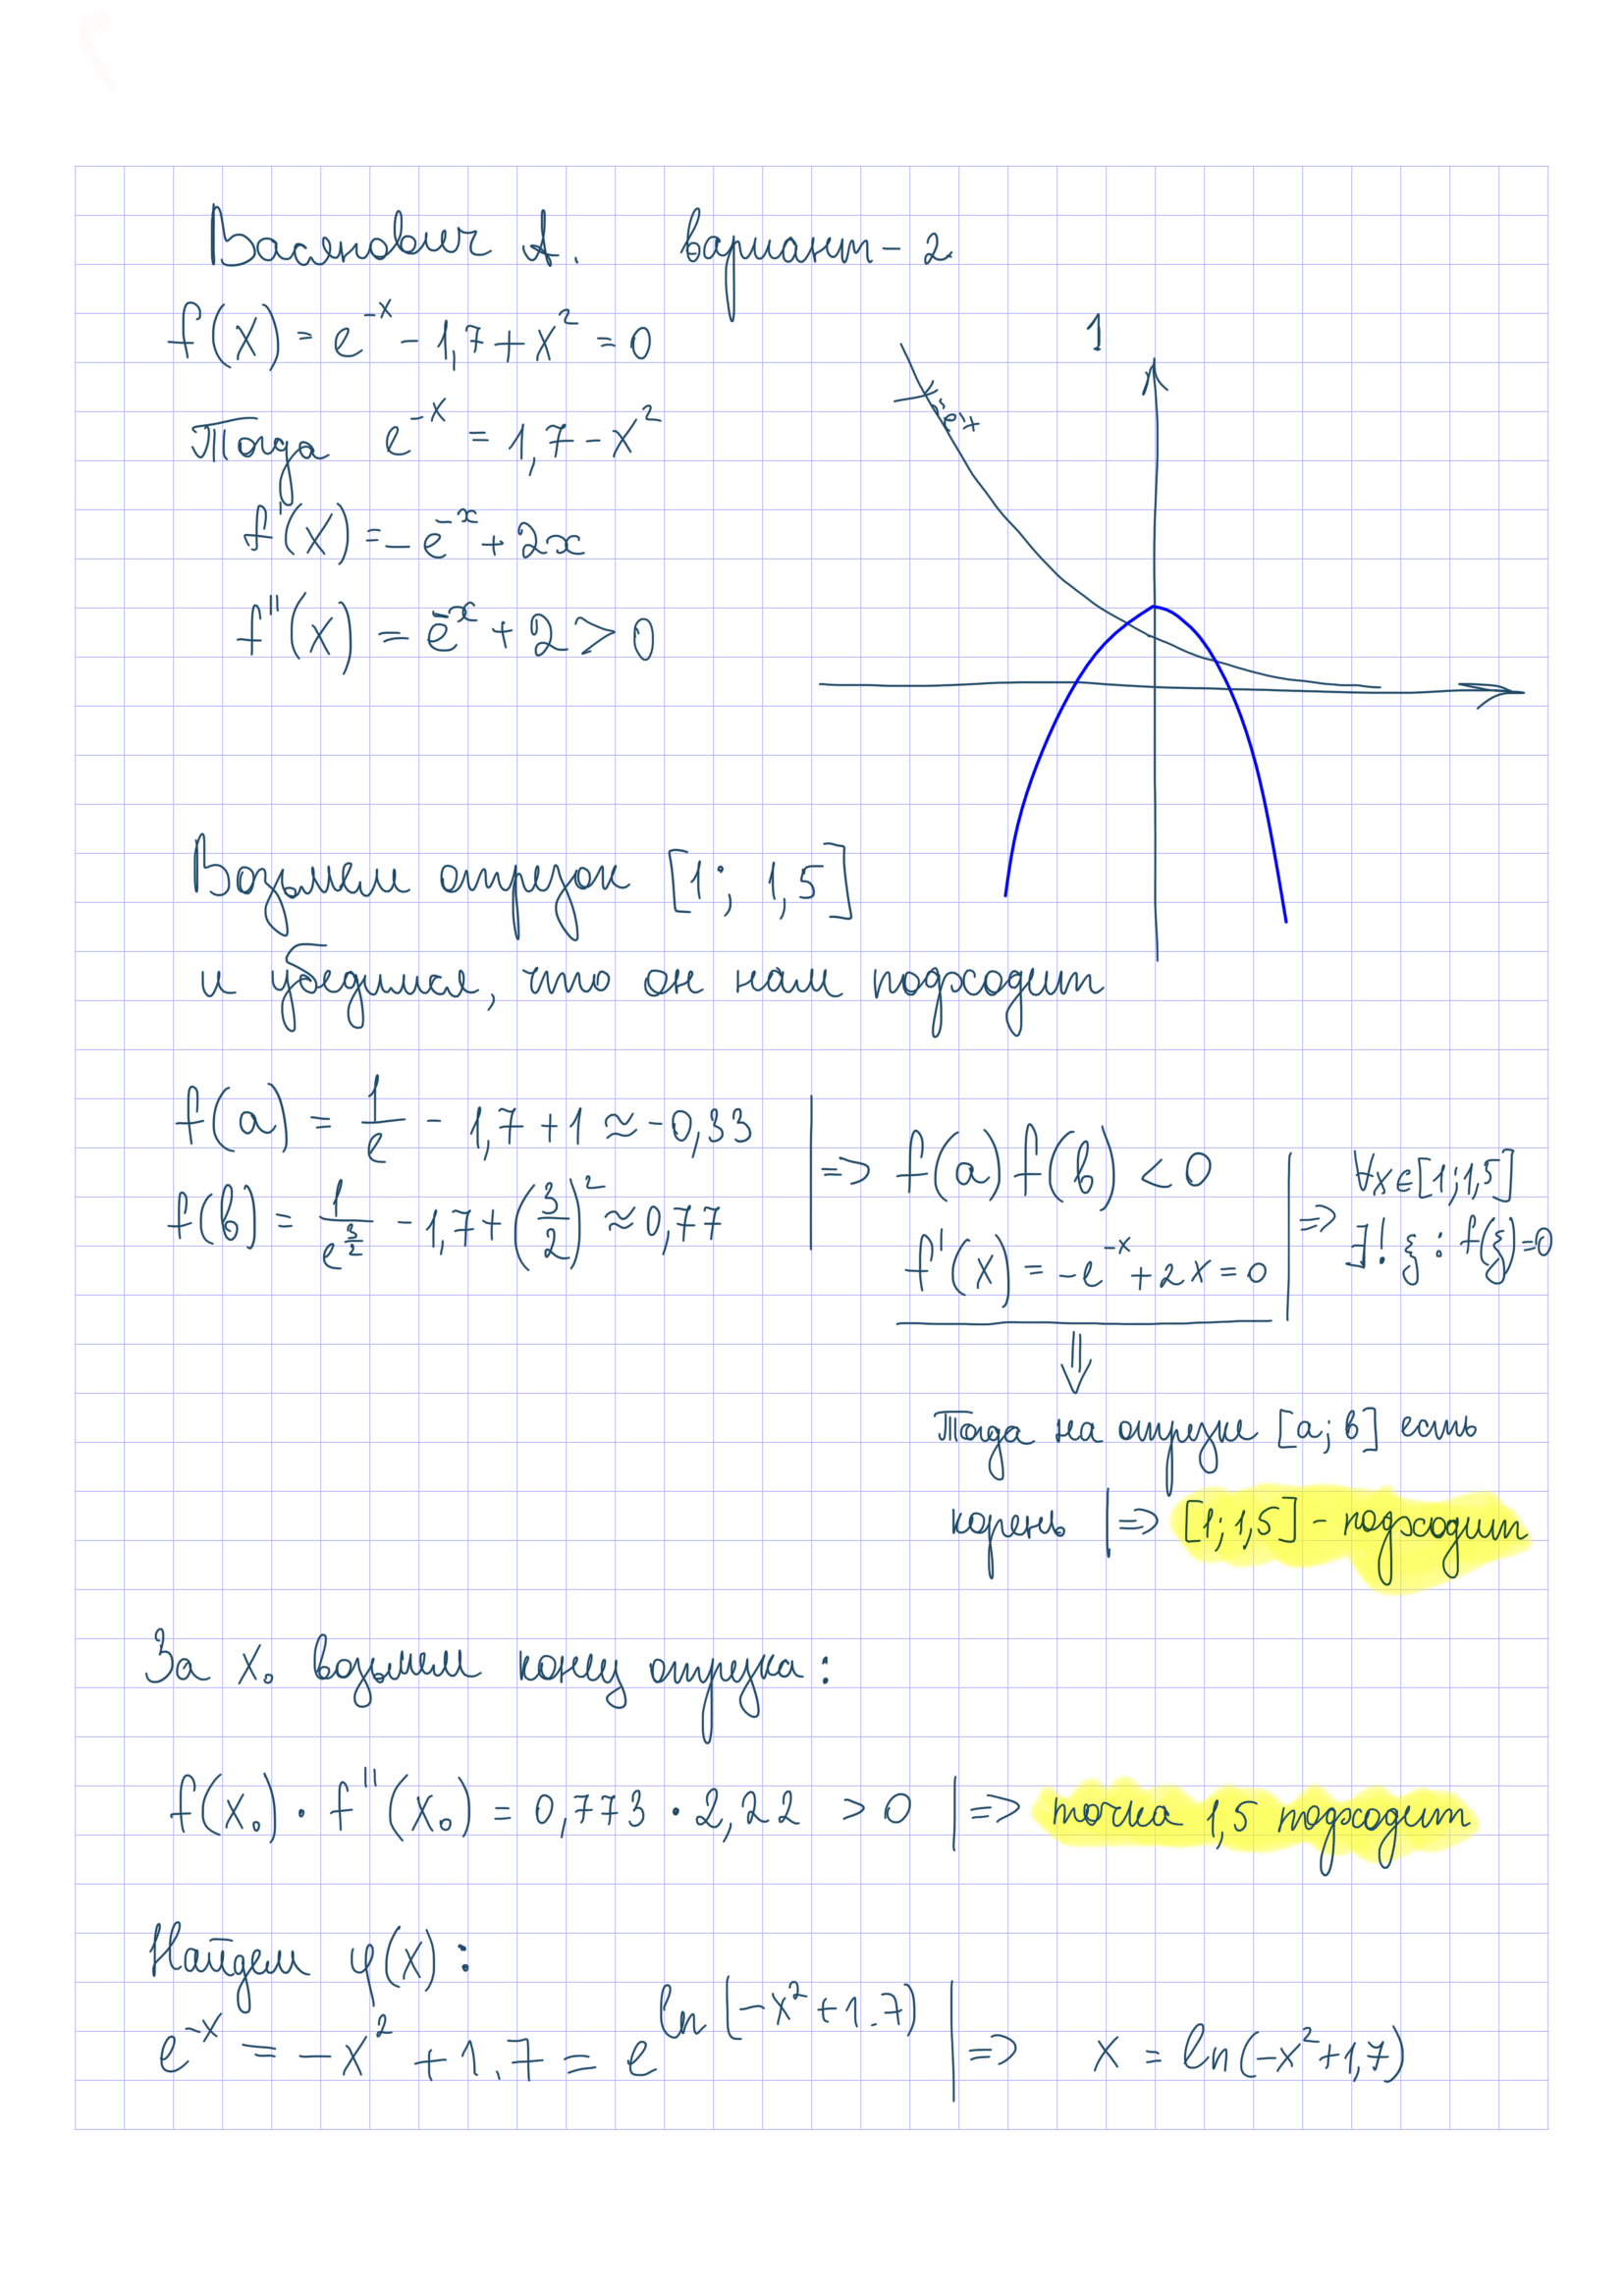 Васянович А. вариант - 2
f(x) = e^{-x} - 1,7 + x^2 = 0
1
Тогда e^{-x} = 1,7 - x^2
f'(x) = -e^{-x} + 2x
f''(x) = e^{-x} + 2 > 0
Возьмем отрезок [1; 1,5]
и убедимся, что он нам подходит
f(a) = 1/e - 1,7 + 1 ≈ -0,33
f(b) = 1/e^{3/2} - 1,7 + (3/2)^2 ≈ 0,77
=> f(a) f(b) < 0
f'(x) = -e^{-x} + 2x = 0
=> ∀x∈[1;1,5]
∃! ξ : f(ξ)=0
⇓
Тогда на отрезке [a; b] есть
корень | => [1; 1,5] - подходит
За x₀ возьмем конец отрезка:
f(x₀) · f''(x₀) = 0,773 · 2,22 > 0 | => точка 1,5 подходит
Найдем φ(x):
e^{-x} = -x^2 + 1.7 = e^{ln(-x^2 + 1.7)} | => x = ln(-x^2+1,7)